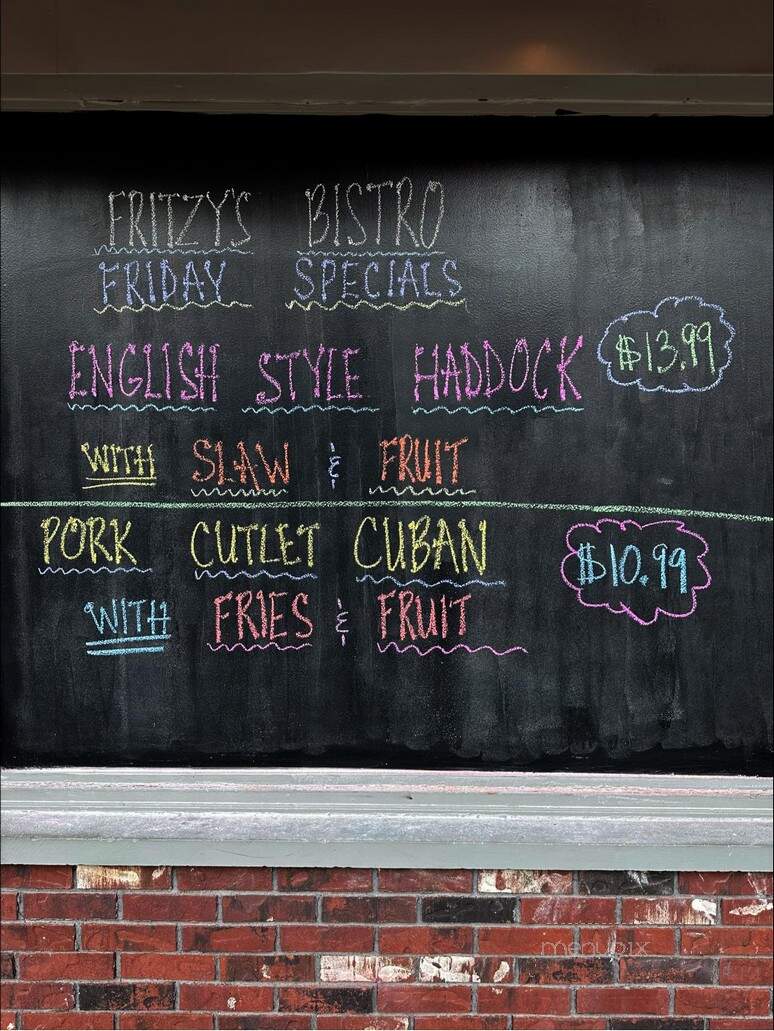 FRITZY'S BISTRO
FRIDAY SPECIALS
ENGLISH STYLE HADDOCK $13.99
WITH SLAW & FRUIT
PORK CUTLET CUBAN $10.99
WITH FRIES & FRUIT
menupix